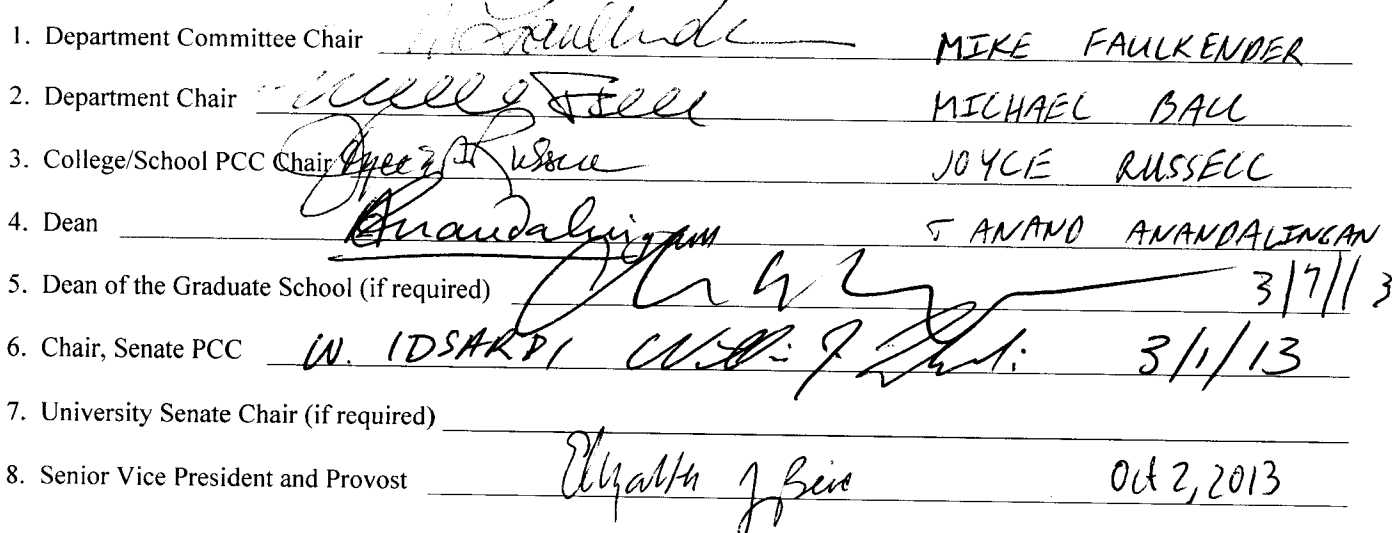 1. Department Committee Chair MIKE FAULKENDER
2. Department Chair MICHAEL BALL
3. College/School PCC Chair JOYCE RUSSELL
4. Dean Anandalingam G ANAND ANANDALINGAM
5. Dean of the Graduate School (if required) 3/7/13
6. Chair, Senate PCC W. IDSARDI 3/1/13
7. University Senate Chair (if required)
8. Senior Vice President and Provost Oct 2, 2013